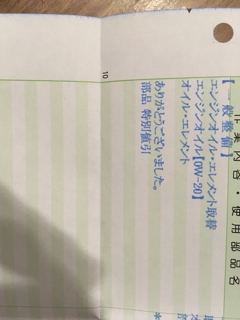 作業内容・使用部品名
【一般整備】
エンジンオイル・エレメント取替
エンジンオイル【0W-20】
オイル・エレメント
ありがとうございました。
部品 特別値引
10